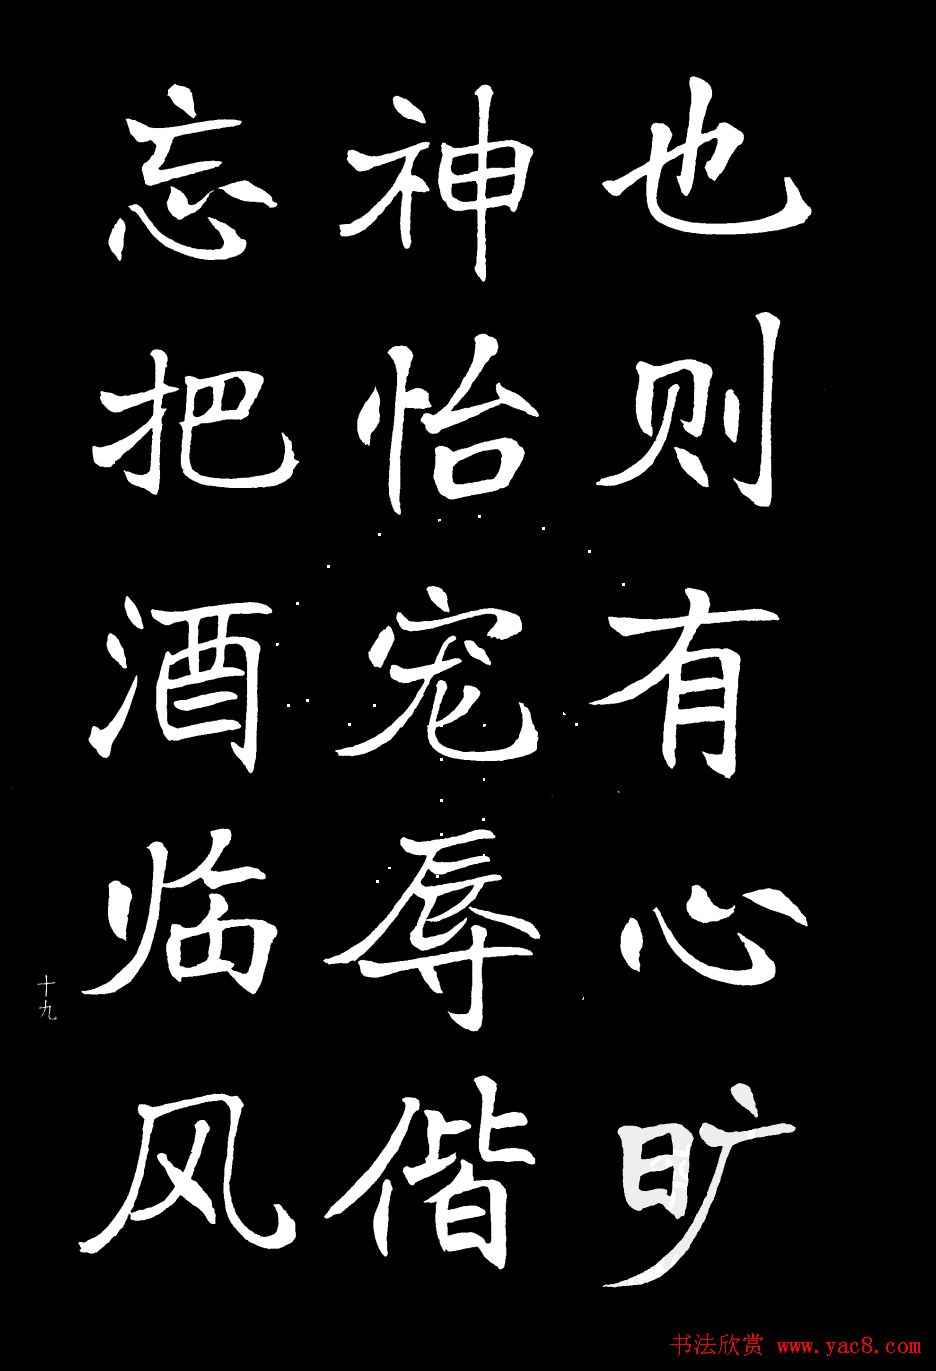 也则有心旷
神怡宠辱偕
忘把酒临风
十九
书法欣赏 www.yac8.com